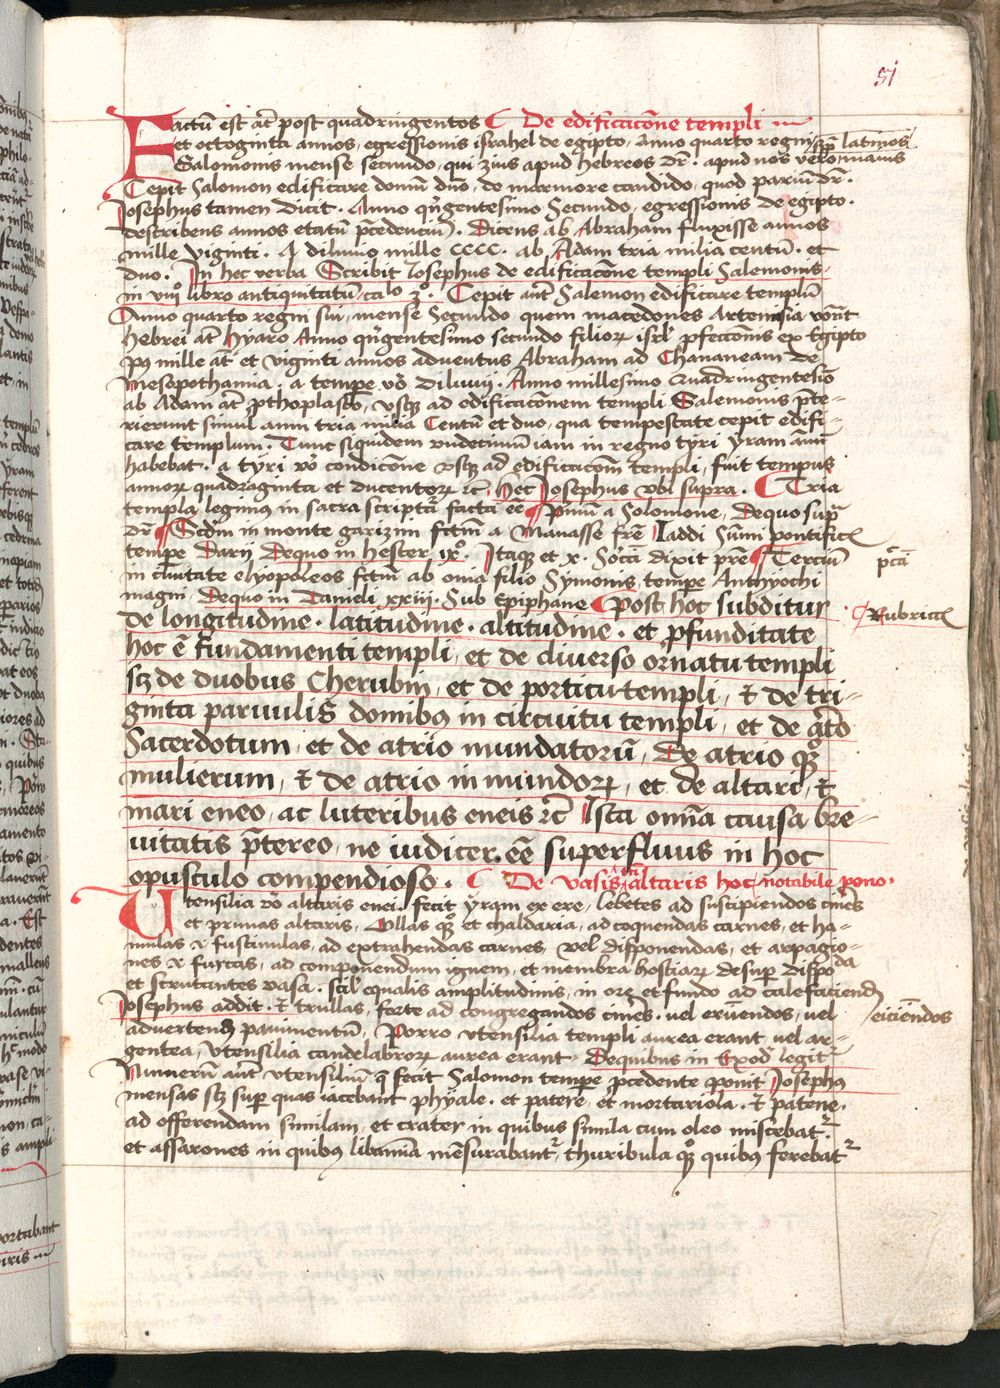 51
Factū est āt post quadringentos De edificacōne templi
et octoginta annos, egressionis israhel de egipto, Anno quarto regni sup̄ latinos
Salomonis mense secundo, qui zius apud hebreos dr̄. apud nos vero, maius
Cepit Salomon edificare domū dn̄o, de marmore candido, quod pariū dr̄.
Josephus tamen dicit. Anno qn̄gentesimo Secundo, egressionis de egipto.
describens annos etatū p̄cedenciū. Dicens ab Abraham fluxisse annos
mille viginti. A diluvio mille cccc. ab Adam tria milia centū. et
duo. In hec verba Scribit Josephus de edificacōne templi Salemonis
in viijo libro antiquitatū, calo 3o. Cepit aūt Salemon edificare templū
Anno quarto regni sui, mense Secundo quem macedones Artemisia vorūt
hebrei āt hyaro Anno qn̄gentesimo secundo filioꝝ isrl̄ pfeccōnis ex Egipto
pꝰ mille āt et viginti annos adventus Abraham ad Chananeam de
Mesopothamia, a tempe vō diluvij. Anno millesimo Quadringentesīo
ab Adam āt p̄thoplasto, vsqꝫ ad edificacōnem templi Salemonis pte-
rierunt simul anni tria milia Centū et duo, qua tempestate cepit edifi-
care templum. Tunc siquidem vndecimum iam in regno tyri yram annū
habebat. a tyri vō condicōne vsqꝫ ad edificacōnē templi, fuit tempus
annoꝝ quadraginta et ducentoꝝ ꝛc̄. hec Josephus vbi supra. Tria
templa legimus in sacra scriptā facta eē p̄mū a Solomone, Dequo supra
dr̄ Scdm̄ in monte garizim fctm̄ a Manasse frē Iaddi sūmi pontificis
tempe Darij Dequo in hester ix. Itaqꝫ et x. Socci dixit prē Terciū
pc̄ia
in civitate elyopoleos fctm̄ ab onia filio Symonis tempe Anthyochi
magni. Dequo in Danieli xxiii. Sub Epiphane Post hoc subditur
Rubrice
de longitudine. latitudine. altitudine. et pfunditate
hoc ē fundamenti templi, et de diverso ornatu templi
sꝫ de duobus Cherubin, et de porticu templi, et de tri-
ginta parvulis domibus in circuitu templi, et de atō
Sacerdotum, et de atrio mundatorū, De atrio qꝫ
mulierum, et de atrio inmundoꝝ, et de altari, et
mari eneo, ac luteribus eneis ꝛc̄ Ista om̄ia causa bre-
vitatis p̄tereo, ne iudicer eē superfluus in hoc
opusculo compendioso. De vasis altaris hoc notabile pono.
Utensilia vō altaris enei fecit yram ex ere, lebetes ad suscipiendos cin̄es
et prunas altaris, Ollas qꝫ et chaldaria, ad coquendas carnes, et ha-
mulas et fuscinulas, ad extrahendas carnes, vel disponendas, et arpagio-
nes et furcas, ad componendum ignem, et membra hostiaꝝ desup dispo
da
et scrutantes vasa. scil equalis amplitudinis, in ore et fundo ad calefaciend
Josephus addit. et trullas, forte ad congregandos cin̄es. vel eruendos, vel
eiciēndos
advertend pavimentū, Porro vtensilia templi aurea erant vel ar-
gentea, Utensilia candelabroꝝ aurea erant. Dequibus in Exodo legit
Numerū aūt vtensiliū q̄ fecit Salomon tempe p̄cedente ponit Josephꝰ
mensas sꝫ sup quas iacebant phyale. et patere, et mortariola, et patene.
ad offerendam similam, et crater in quibus simila cum oleo miscebat.
et assarones in quibꝰ libamīa mēsurabant, thuribula qꝫ quibꝰ ferebat